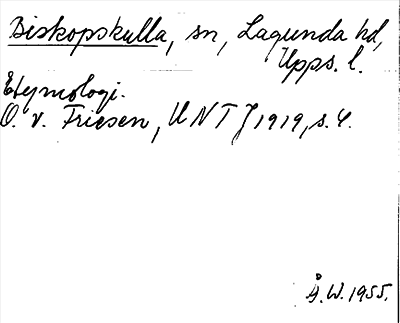 Biskopskulla, sn, Lagunda hd,
Upps. l.
Etymologi.
O. v. Friesen, UNT J 1919, s. 4.
Å.W. 1955.